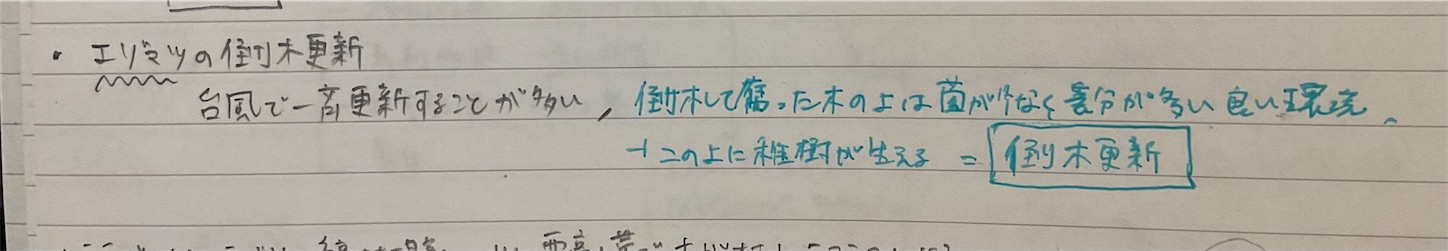 ・エゾマツの倒木更新
台風で一斉更新することが多い, 倒木して腐った木の上は菌が少なく養分が多い良い環境、
→この上に稚樹が生える = 倒木更新